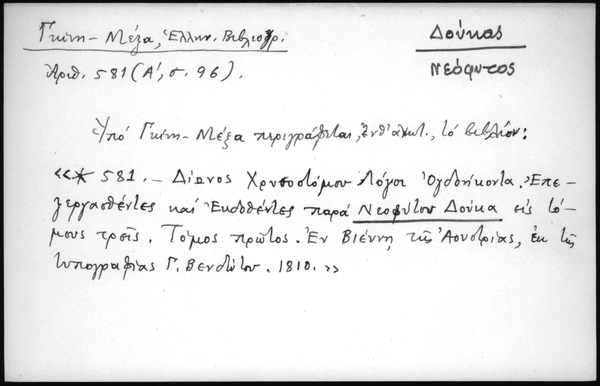 Γκίνη-Μέξα, Ἑλλην. Βιβλιογρ.
Δούκας
Ἀριθ. 581 (Α', σ. 96).
Νεόφυτος
Ὑπό Γκίνη-Μέξα περιγράφεται, τό βιβλίον:
«* 581. - Δίωνος Χρυσοστόμου Λόγοι Ὀγδοήκοντα. Ἐπε-
ξεργασθέντες καί Ἐκδοθέντες παρά Νεοφύτου Δούκα εἰς τό-
μους τρεῖς. Τόμος πρῶτος. Ἐν Βιέννῃ τῆς Ἀουστρίας, ἐκ τῆς
τυπογραφίας Γ. Βενδώτου. 1810.»